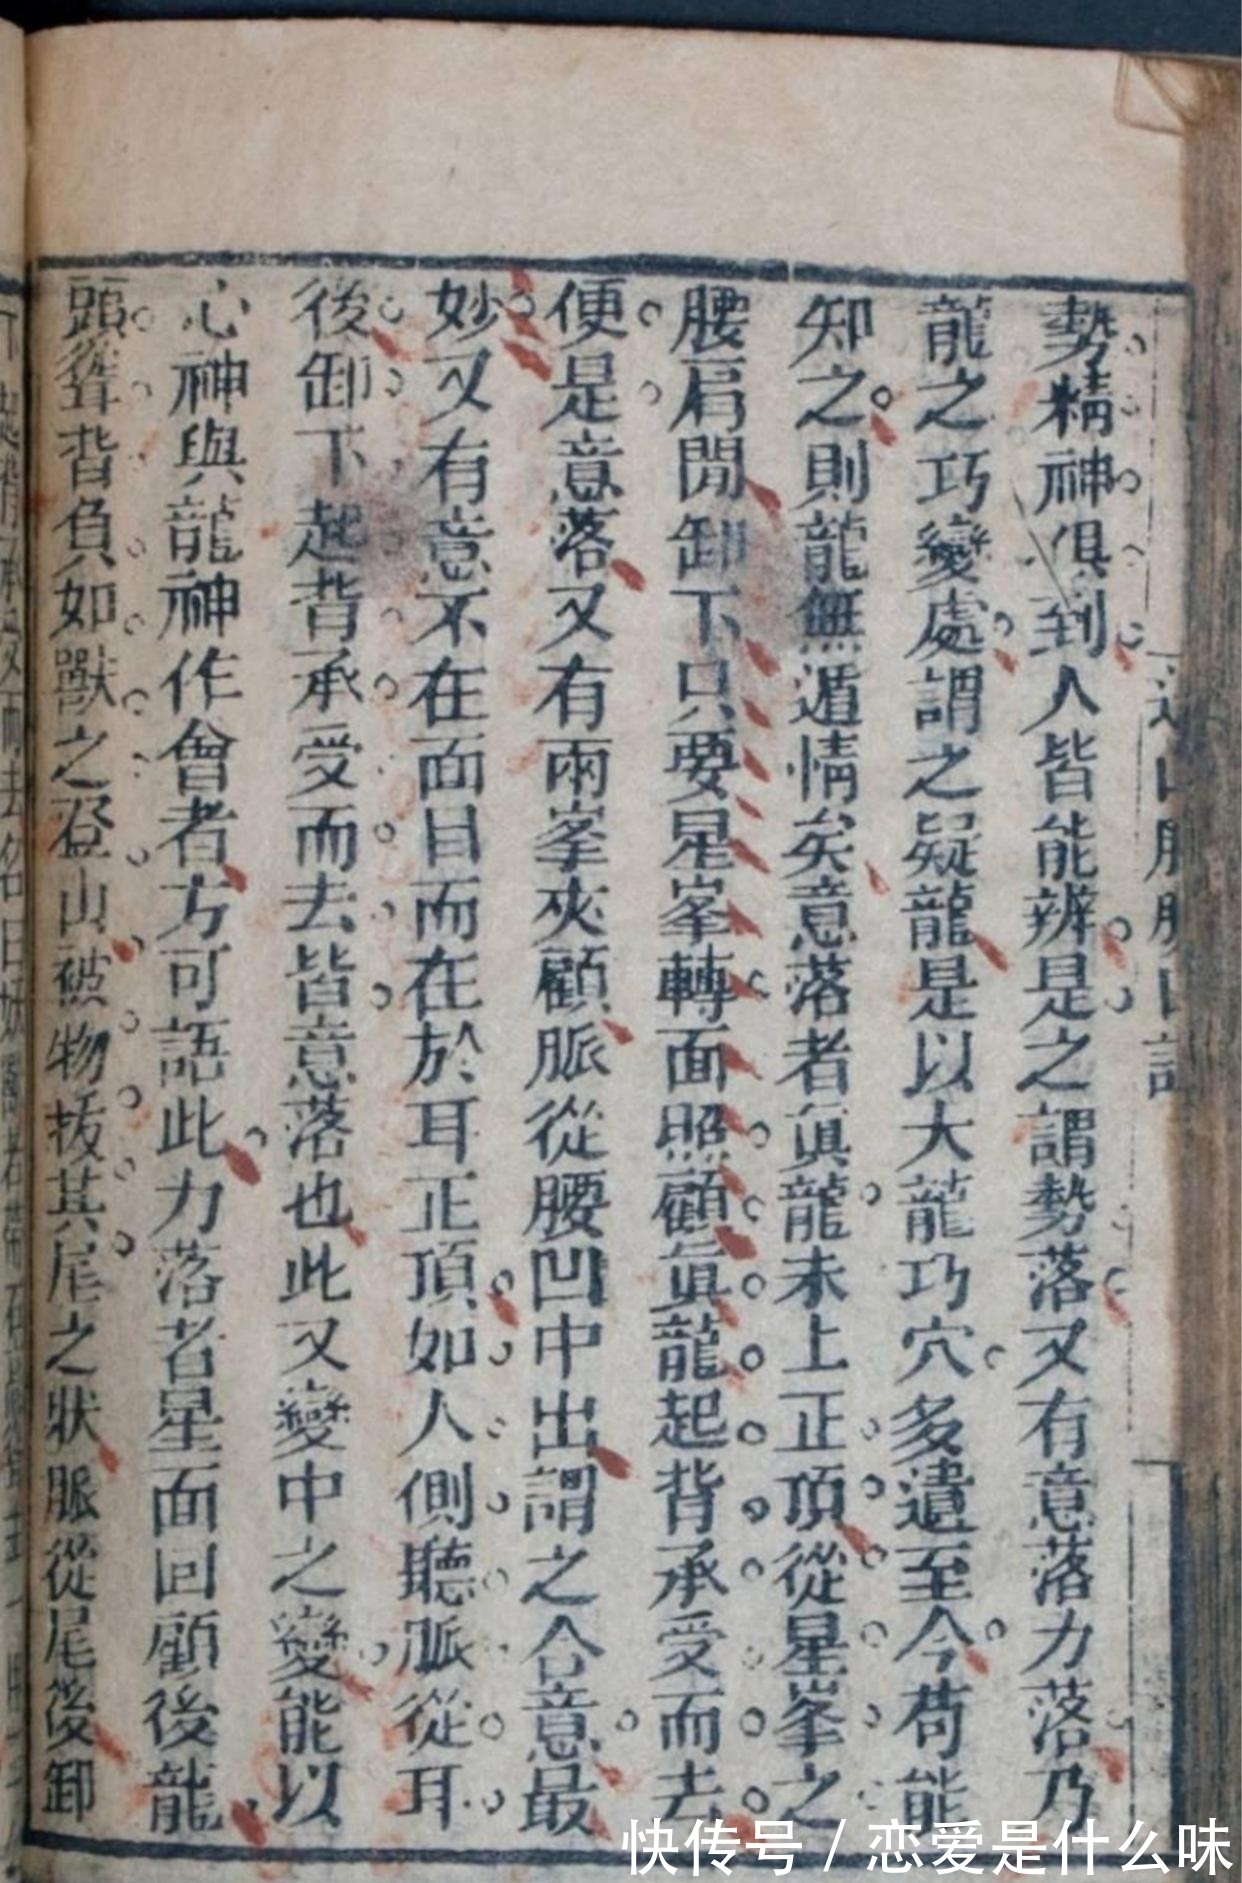 勢精神俱到人皆能辨是之謂勢落又有意落力落乃
龍之巧變處謂之疑龍是以大龍巧穴多遺至今苟能
知之則龍無遁情矣意落者眞龍未上正頂從星峯之
腰肩閒卸下只要星峯轉面照顧眞龍起背承受而去
便是意落又有兩峯夾顧脈從腰凹中出謂之合意最
妙又有意不在面目而在於耳正頂如人側聽脈從耳
後卸下起背承受而去皆意落也此又變中之變能以
心神與龍神作會者方可語此力落者星面回顧後龍
頭聳背負如獸之登山被物拔其尾之狀脈從尾後卸
快传号 / 恋爱是什么味